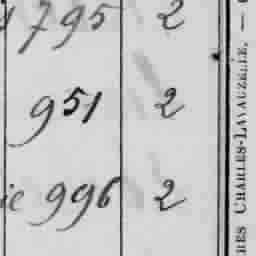 795 2
951 2
ie 996 2
RES CHARLES-LAVAUZELLE. —